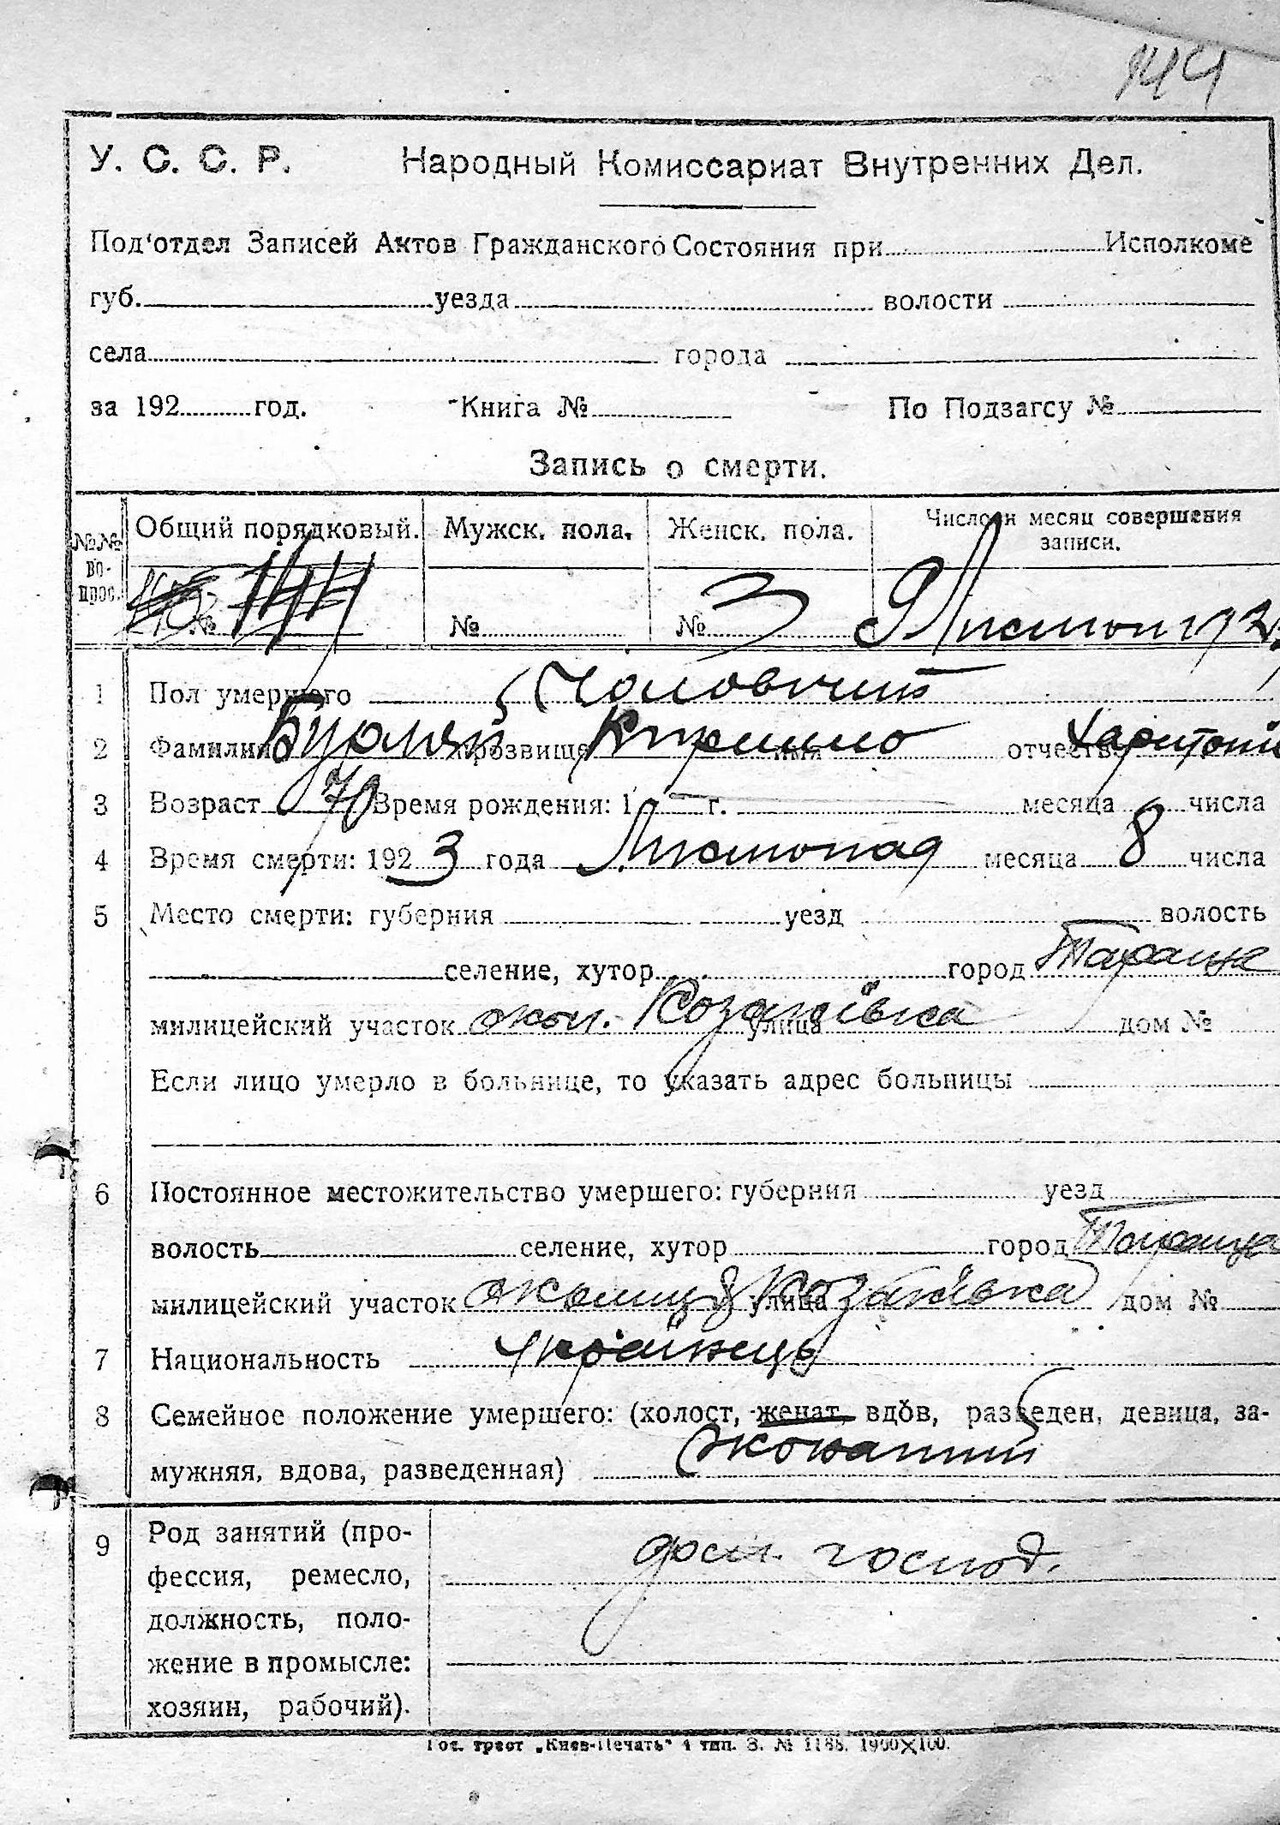 144
У. С. С. Р. Народный Комиссариат Внутренних Дел.
Под'отдел Записей Актов Гражданского Состояния при Исполкоме
губ. уезда волости
села города
за 192 год. Книга № По Подзагсу №
Запись о смерти.
№№ вопрос. Общий порядковый. Мужск. пола. Женск. пола. Число и месяц совершения записи.
№ 144 № № 3 9 Листоп 192
1 Пол умершего Чоловичий
2 Фамилия прозвище Кирилло имя отчество Харитон
3 Возраст 70 Время рождения: 1 г. месяца числа
4 Время смерти: 1923 года Листопад месяца 8 числа
5 Место смерти: губерния уезд волость
селение, хутор город Тараща
милицейский участок окол. Козаківка улица дом №
Если лицо умерло в больнице, то указать адрес больницы
6 Постоянное местожительство умершего: губерния уезд
волость селение, хутор город Тараща
милицейский участок околиця Козаківка улица дом №
7 Национальность українець
8 Семейное положение умершего: (холост, женат, вдов, разведен, девица, за-
мужняя, вдова, разведенная) жонатий
9 Род занятий (про-
фессия, ремесло,
должность, поло-
жение в промысле:
хозяин, рабочий).
господ.
Гос. трест „Киев-Печать" 4 тип. З. № 1188. 1900×100.